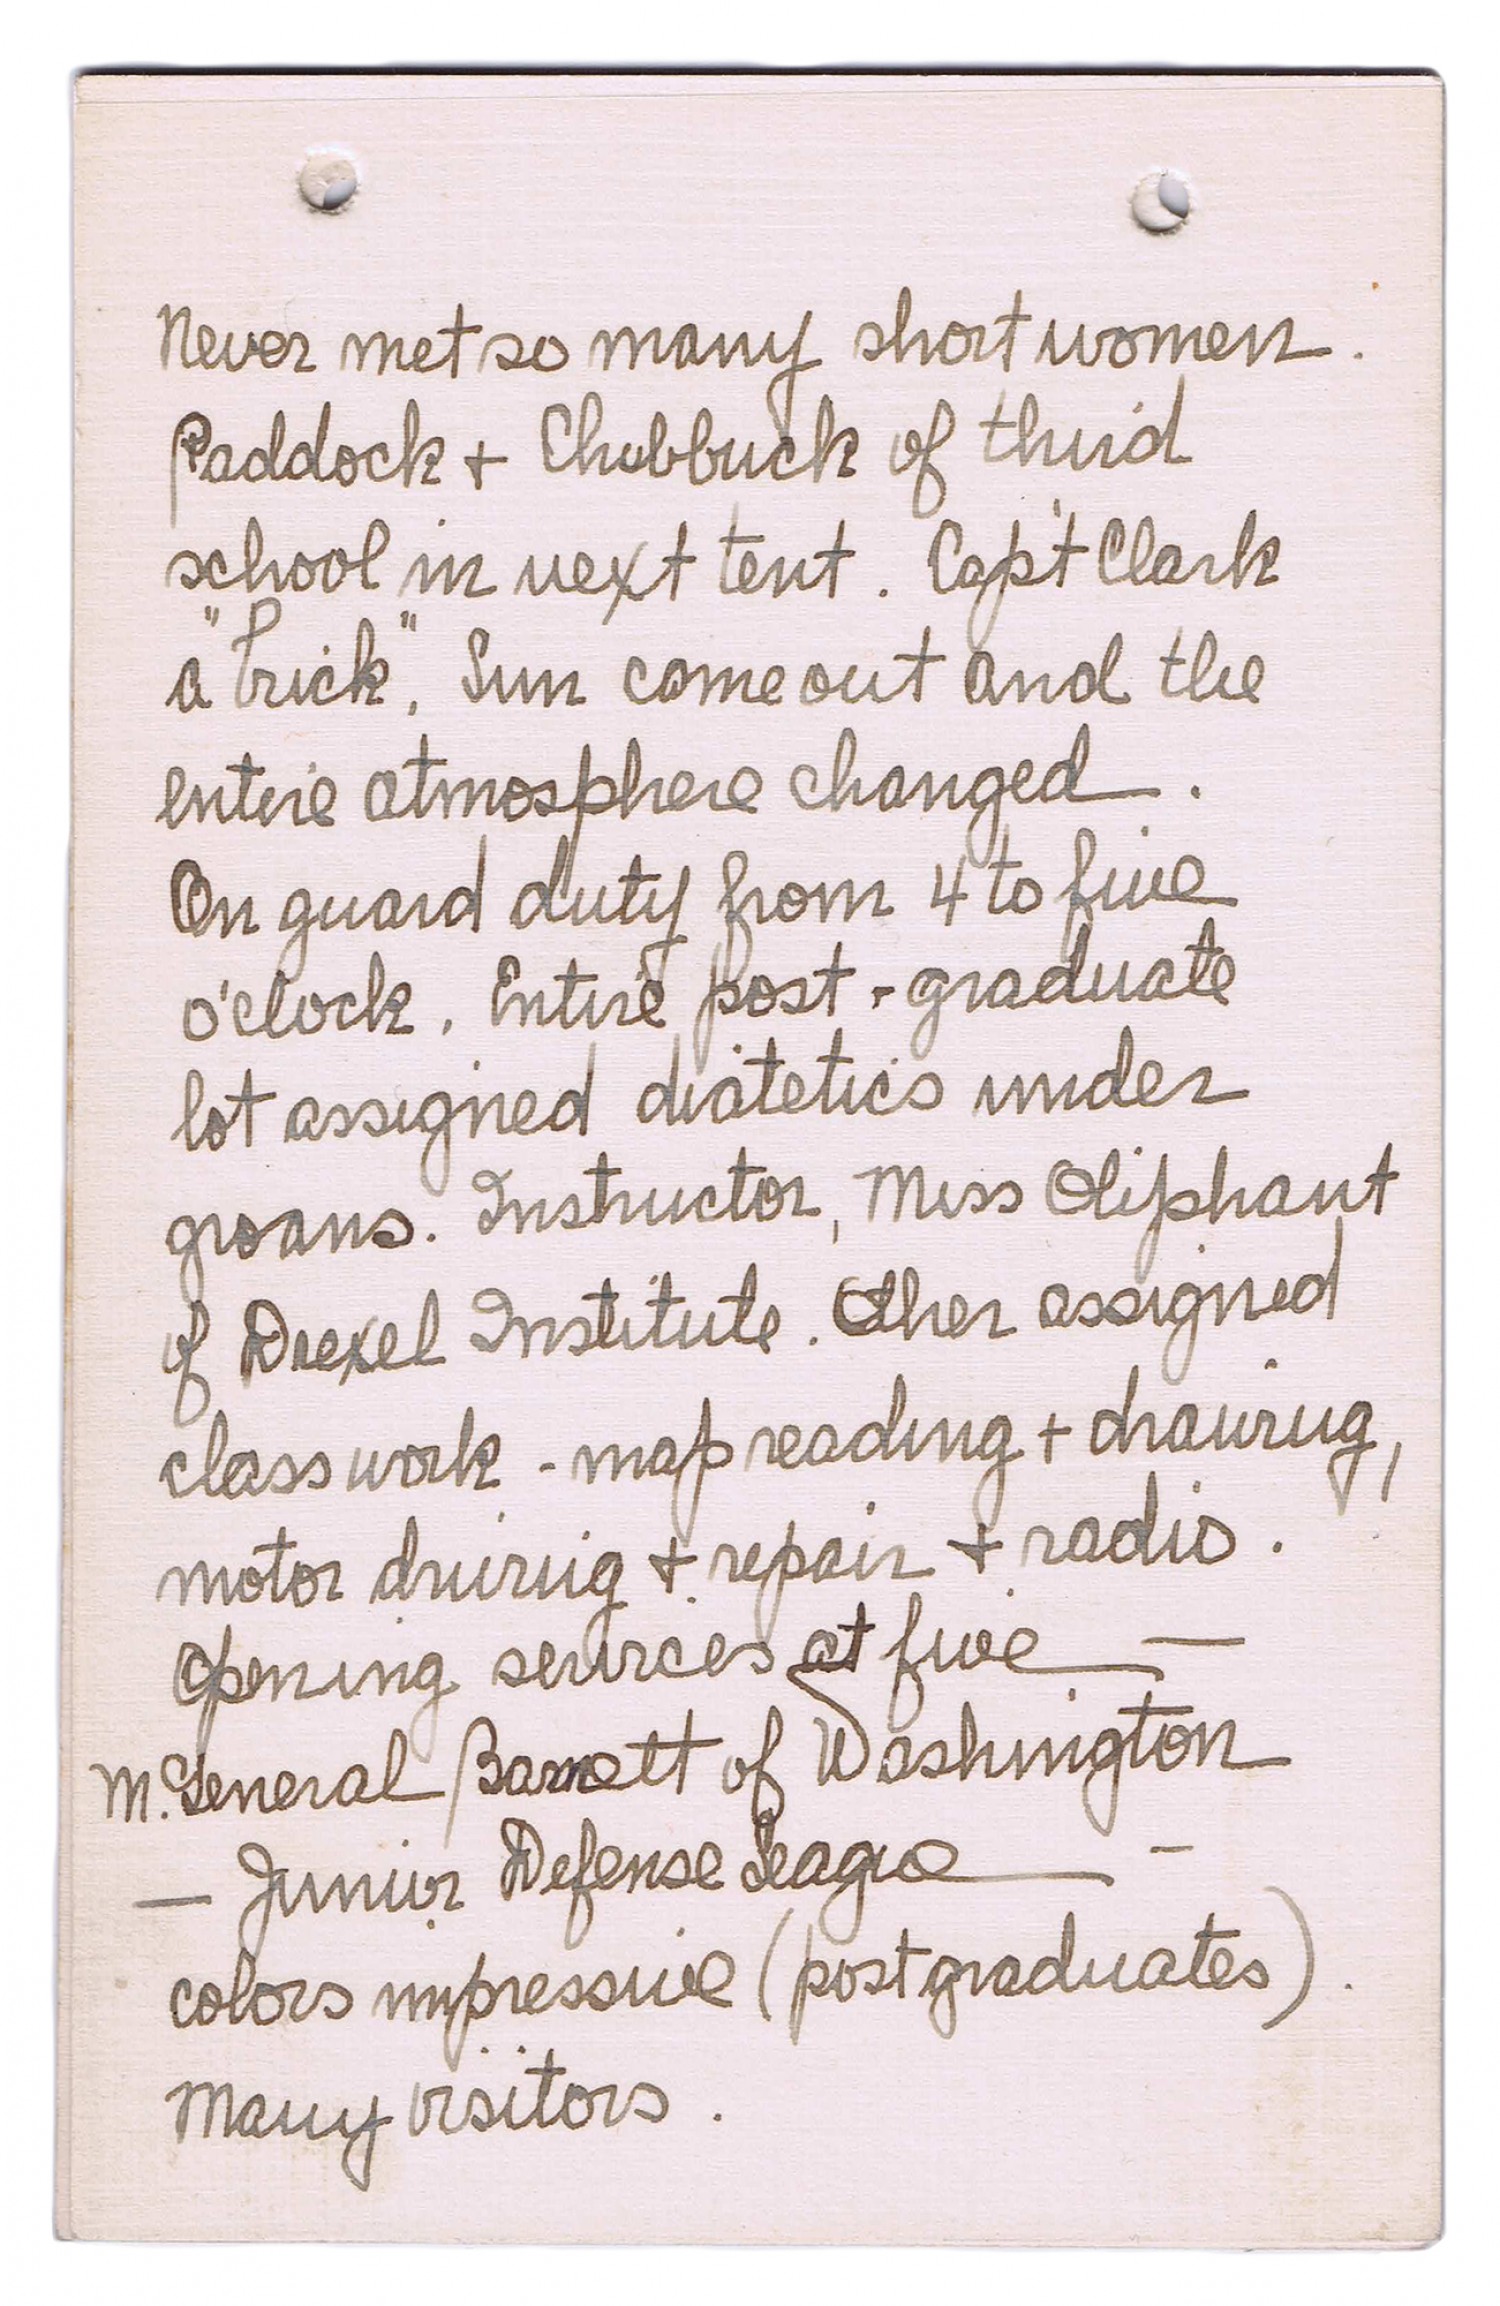 Never met so many short women.
Paddock + Chubbuck of third
school in next tent. Cap't Clark
a "brick". Sun came out and the
entire atmosphere changed.
On guard duty from 4 to five
o'clock. Entire post-graduate
lot assigned diatetics under
groans. Instructor, Miss Oliphant
of Drexel Institute. Other assigned
class work - map reading + drawing,
motor driving + repair + radio.
Opening services at five —
M. General Barnett of Washington
— Junior Defense League —
colors impressive (post graduates).
Many visitors.